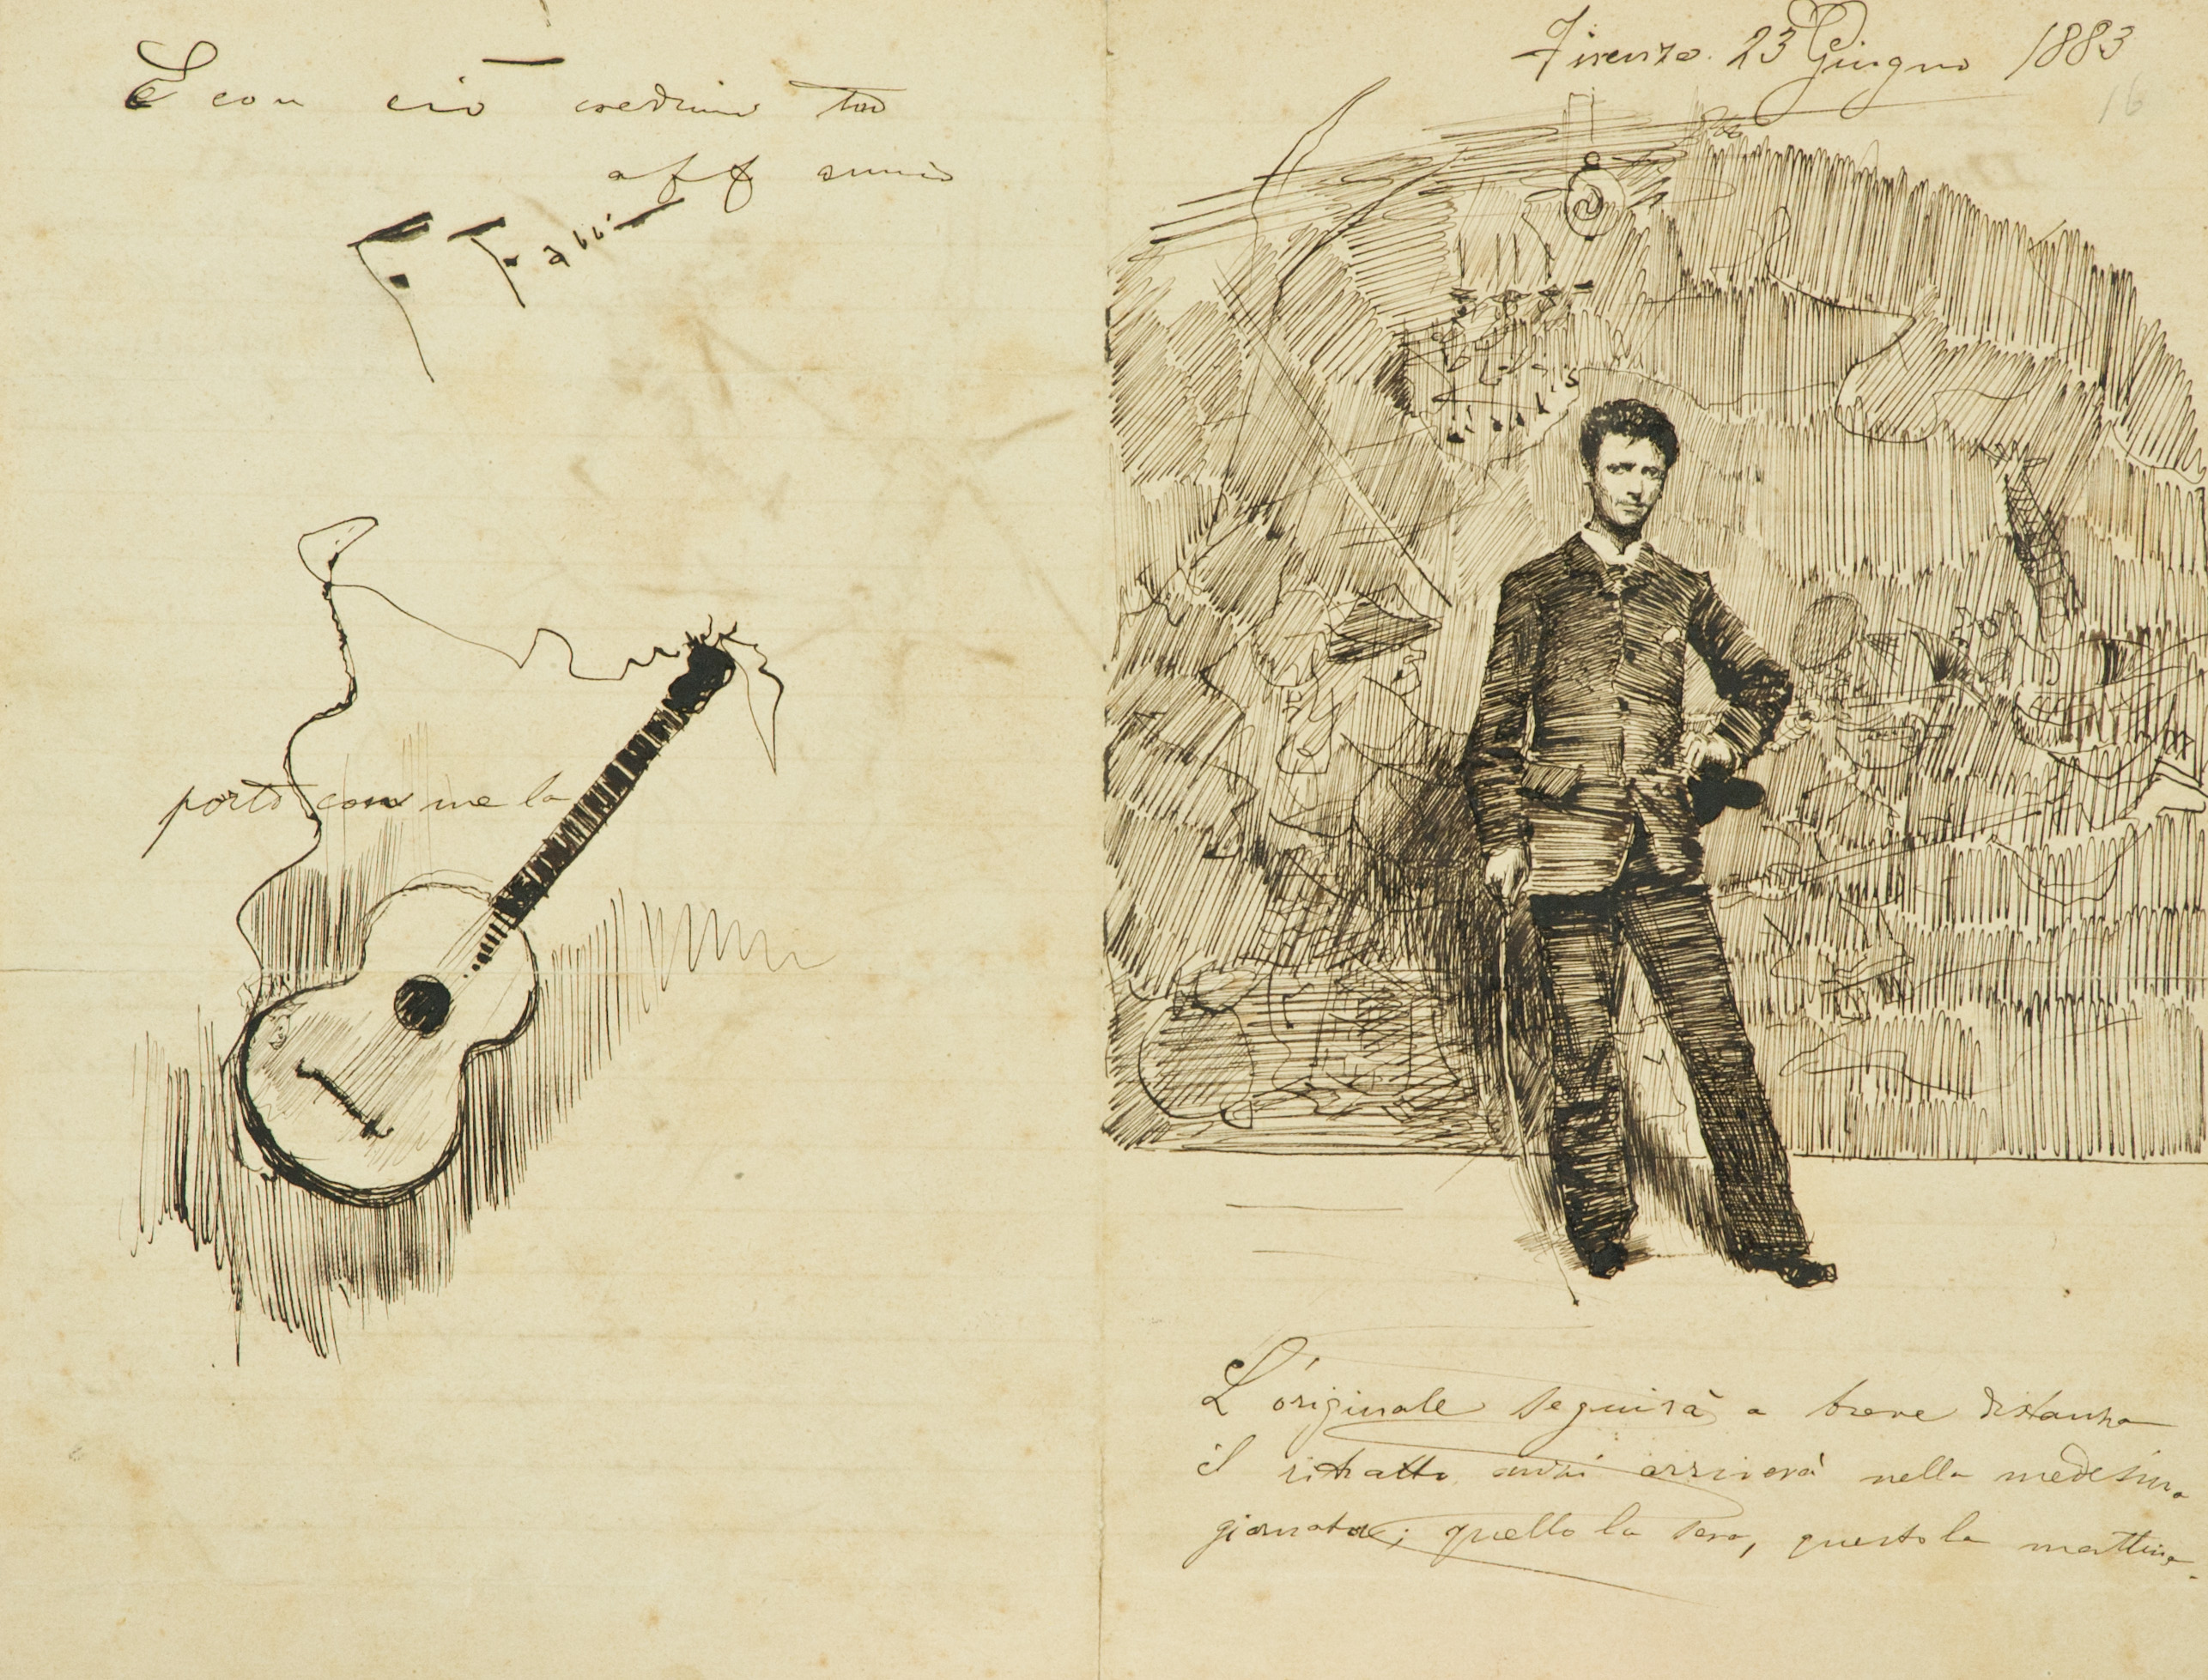 E con ciò credimi tuo
aff amico
F. Fabbi
porto con me la
Firenze. 23 Giugno 1883
16
L'originale seguirà a breve distanza
il ritratto anzi arriverà nella medesima
giornata; quello la sera, questo la mattina.